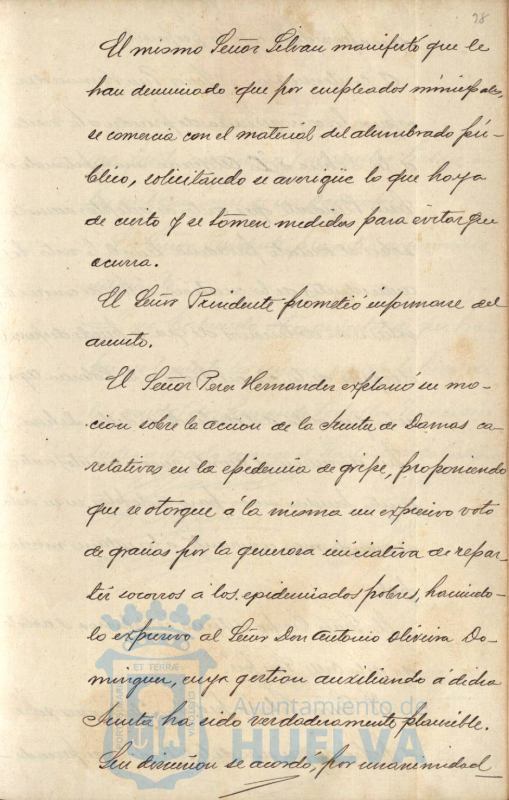 28
El mismo Señor Silvan manifestó que le
han denunciado que por empleados municipales,
se comercia con el material del alumbrado pú-
blico, solicitando se averigüe lo que haya
de cierto y se tomen medidas para evitar que
ocurra.
El Señor Presidente prometió informarse del
asunto.
El Señor Perez Hernandez explanó su mo-
cion sobre la accion de la Junta de Damas ca-
retativas en la epidemia de gripe, proponiendo
que se otorgue á la misma un expresivo voto
de gracias por la generosa iniciativa de repar-
tir socorros á los epidemiados pobres, haciendo-
lo expresivo al Señor Don Antonio Oliveira Do-
minguez, cuya gestion auxiliando á dicha
Junta ha sido verdaderamente plausible.
Sin discusion se acordó, por unanimidad
ET TERRÆ
Ayuntamiento de
HUELVA